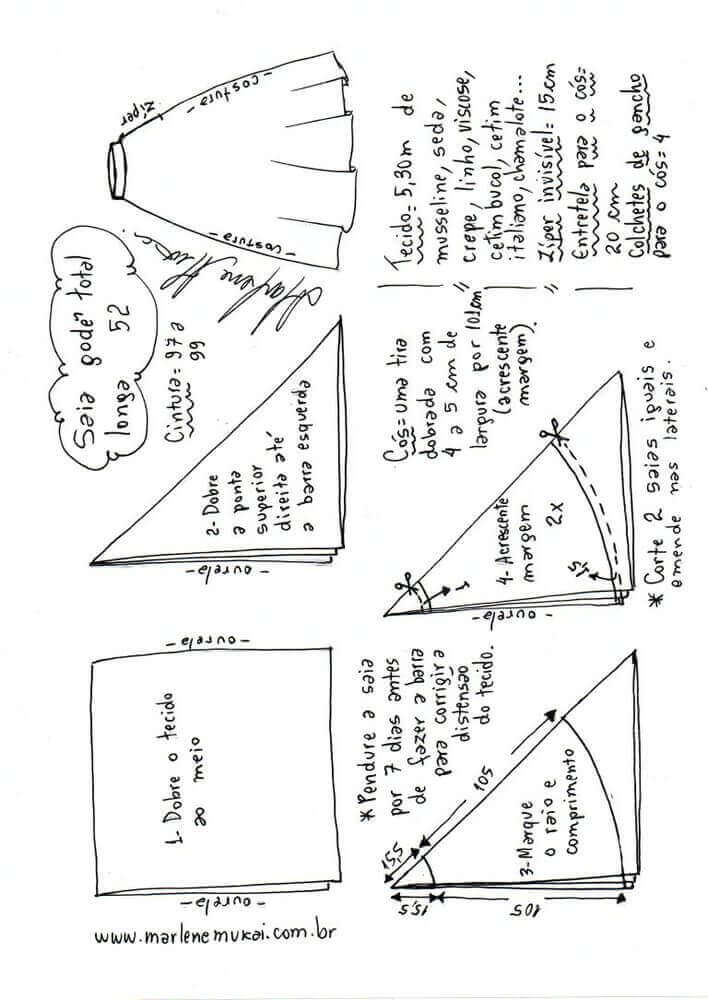 Saia godê total
longa 52
Cintura = 97 a
99
zíper
- costura -
- costura -
1- Dobre o tecido
ao meio
- ourela -
- ourela -
2- Dobre
a ponta
superior
direita até
a barra esquerda
- ourela -
www.marlenemukai.com.br
* Pendure a saia
por 7 dias antes
de fazer a barra
para corrigir a
distensão
do tecido.
15,5
105
15,5
105
3- Marque
o raio e
comprimento
Cós = Uma tira
dobrada com
4 a 5 cm de
largura por 101cm
(acrescente
margem).
4- Acrescente
margem
2x
1
1,5
- ourela -
* Corte 2 saias iguais e
emende nas laterais.
Tecido = 5,30m de
musseline, seda,
crepe, linho, viscose,
cetim bucol, cetim
italiano, chamalote...
Zíper invisível = 15cm
Entretela para o cós =
20 cm
Colchetes de gancho
para o cós = 4